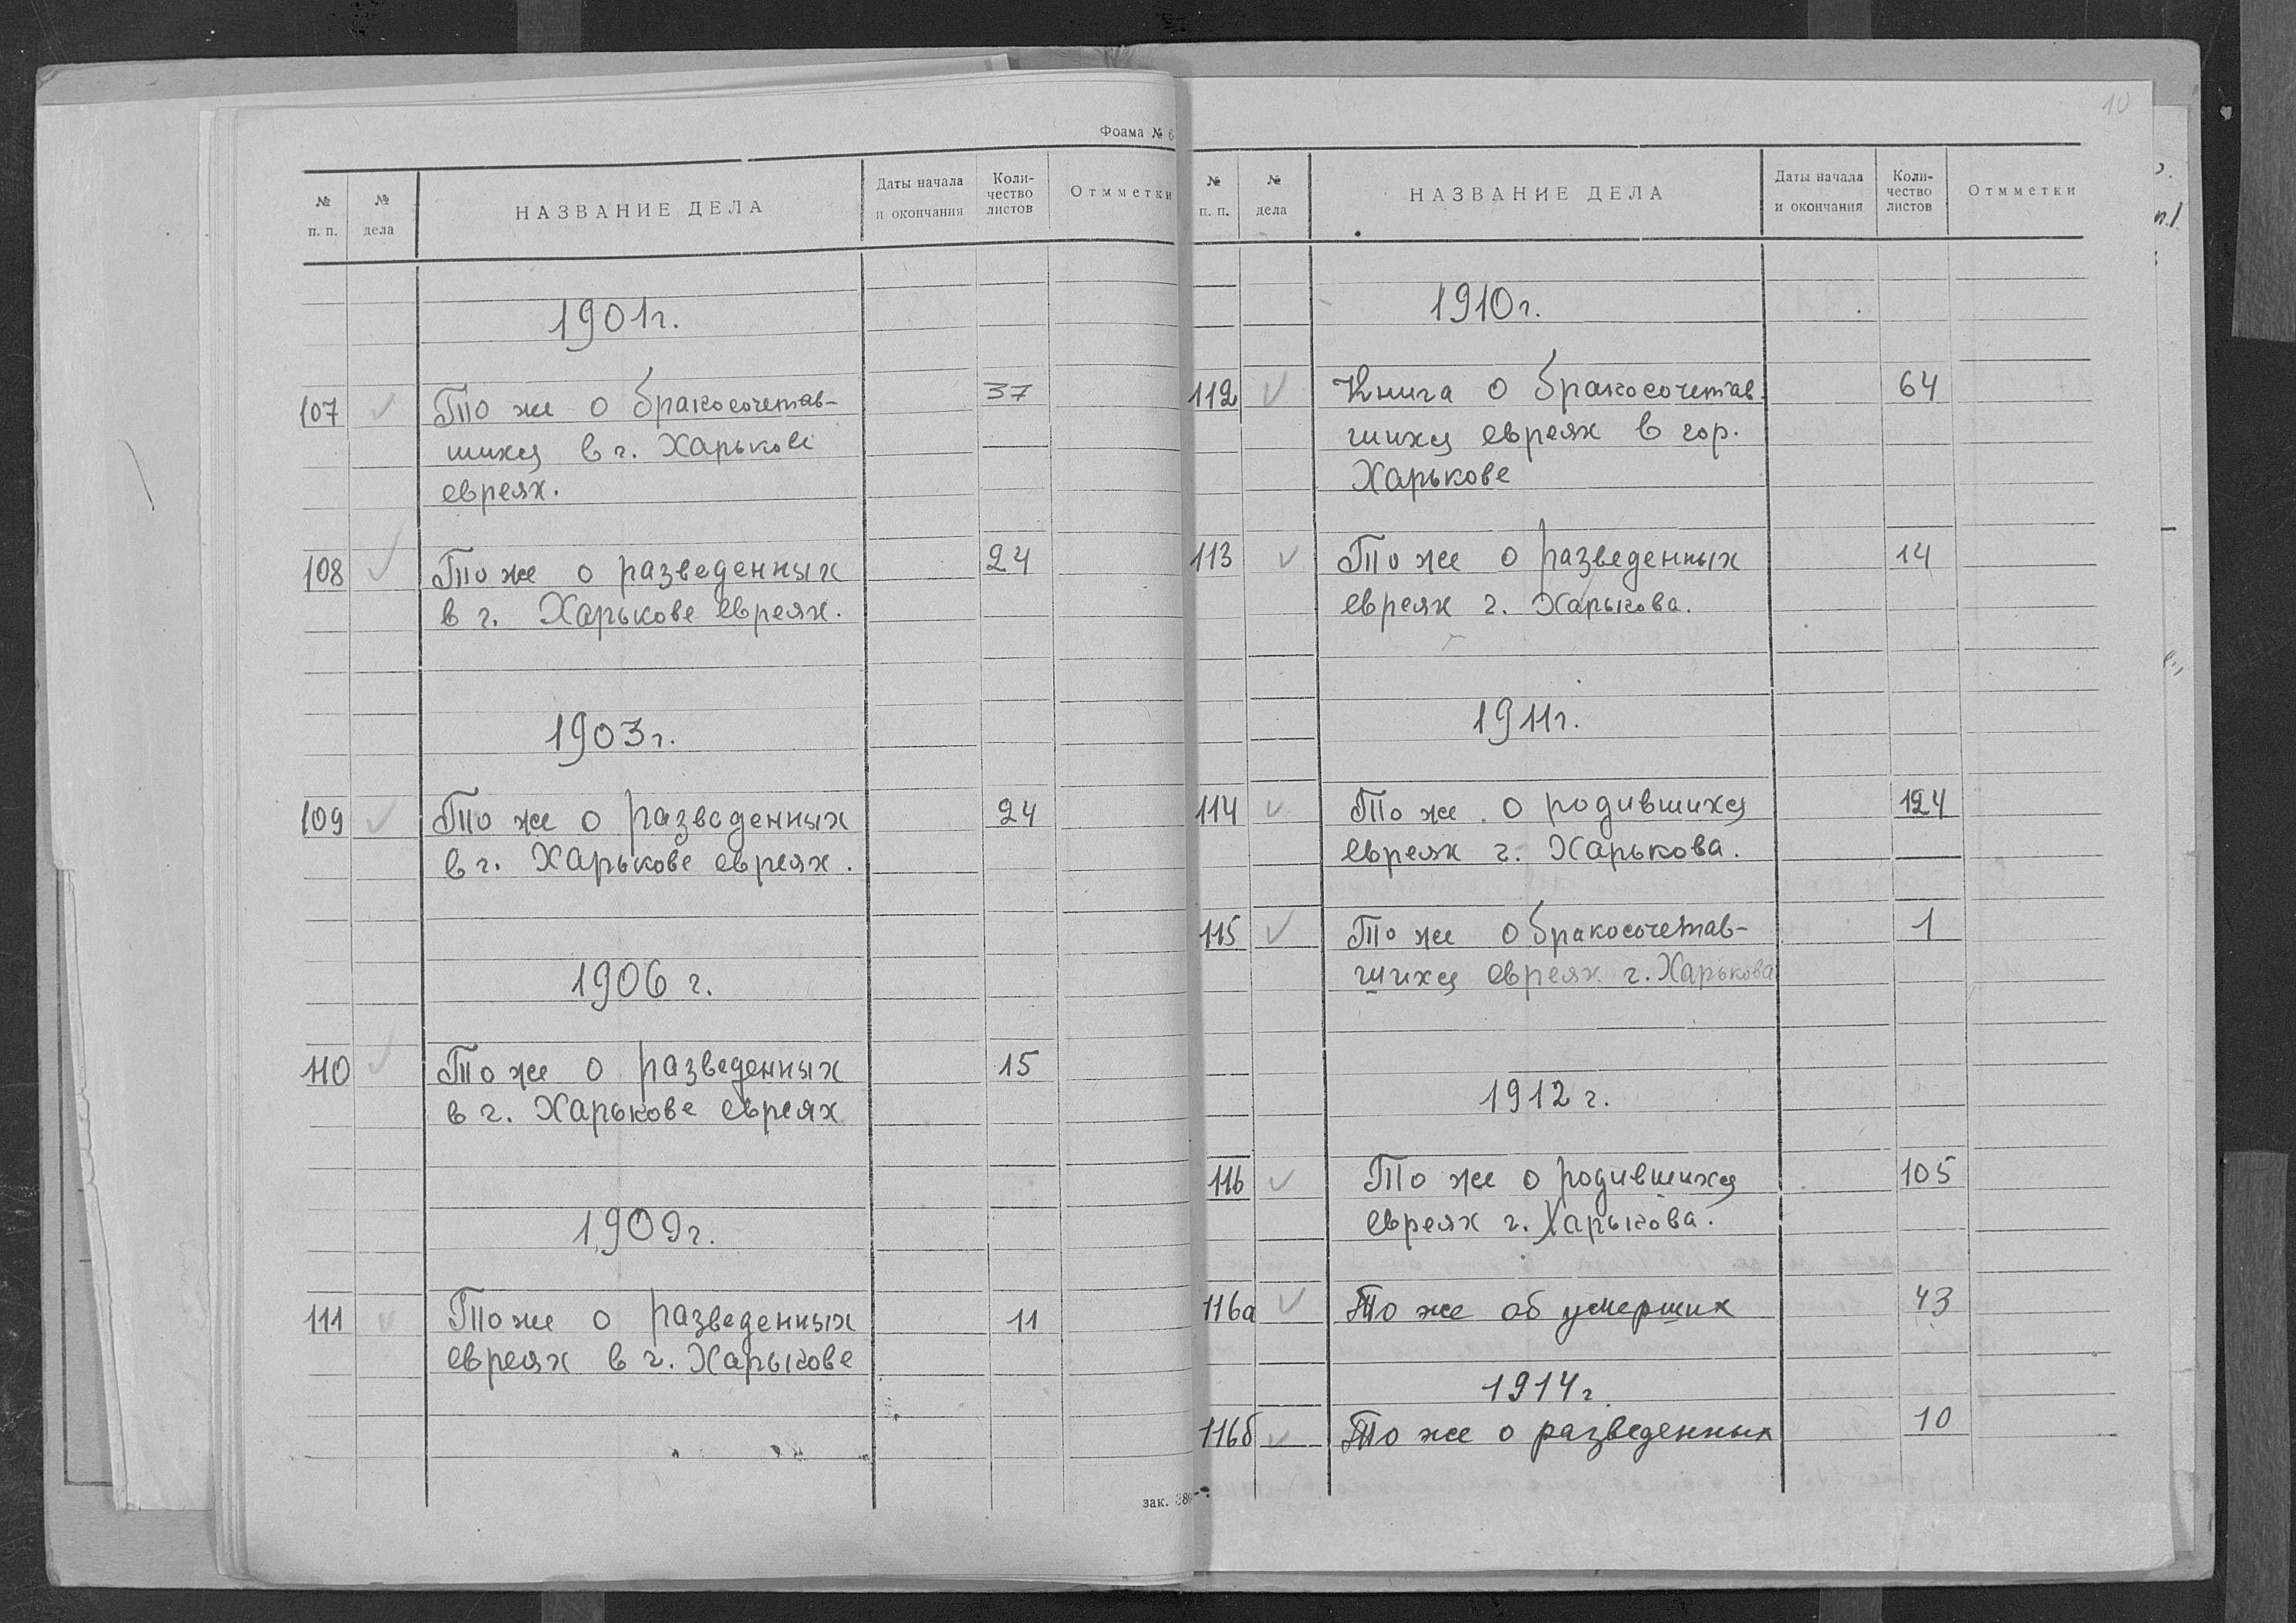 Фоама № 6
№ п. п.
№ дела
НАЗВАНИЕ ДЕЛА
Даты начала и окончания
Коли-чество листов
Отмметки
1901г.
107 ✓ То же о бракосочетав- 37
шихся в г. Харькове
евреях.
108 ✓ То же о разведенных 24
в г. Харькове евреях.
1903г.
109 ✓ То же о разведенных 24
в г. Харькове евреях.
1906 г.
110 ✓ То же о разведенных 15
в г. Харькове евреях
1909г.
111 ✓ То же о разведенных 11
евреях в г. Харькове
зак.
10
№ п. п.
№ дела
НАЗВАНИЕ ДЕЛА
Даты начала и окончания
Коли-чество листов
Отмметки
1910г.
112 ✓ Книга о бракосочетав- 64
шихся евреях в гор.
Харькове
113 ✓ То же о разведенных 14
евреях г. Харькова.
1911г.
114 ✓ То же о родившихся 124
евреях г. Харькова.
115 ✓ То же о бракосочетав- 1
шихся евреях г. Харькова
1912 г.
116 ✓ То же о родившихся 105
евреях г. Харькова.
116а ✓ То же об умерших 43
1914г
116б ✓ То же о разведенных 10